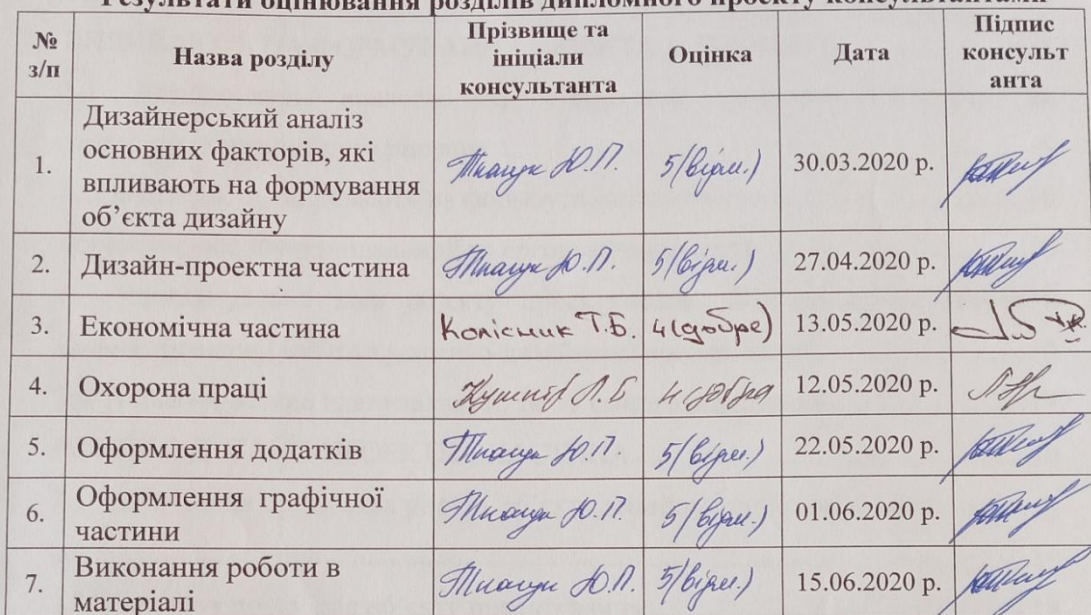 Результати оцінювання розділів дипломного проекту консультантами
№ з/п Назва розділу Прізвище та ініціали консультанта Оцінка Дата Підпис консульт анта
1. Дизайнерський аналіз основних факторів, які впливають на формування об’єкта дизайну Ю.П. 5(відм.) 30.03.2020 р.
2. Дизайн-проектна частина Ю.П. 5(відм.) 27.04.2020 р.
3. Економічна частина Колісник Т.Б. 4(добре) 13.05.2020 р.
4. Охорона праці 4 добре 12.05.2020 р.
5. Оформлення додатків Ю.П. 5(відм.) 22.05.2020 р.
6. Оформлення графічної частини Ю.П. 5(відм.) 01.06.2020 р.
7. Виконання роботи в матеріалі Ю.П. 5(відм.) 15.06.2020 р.